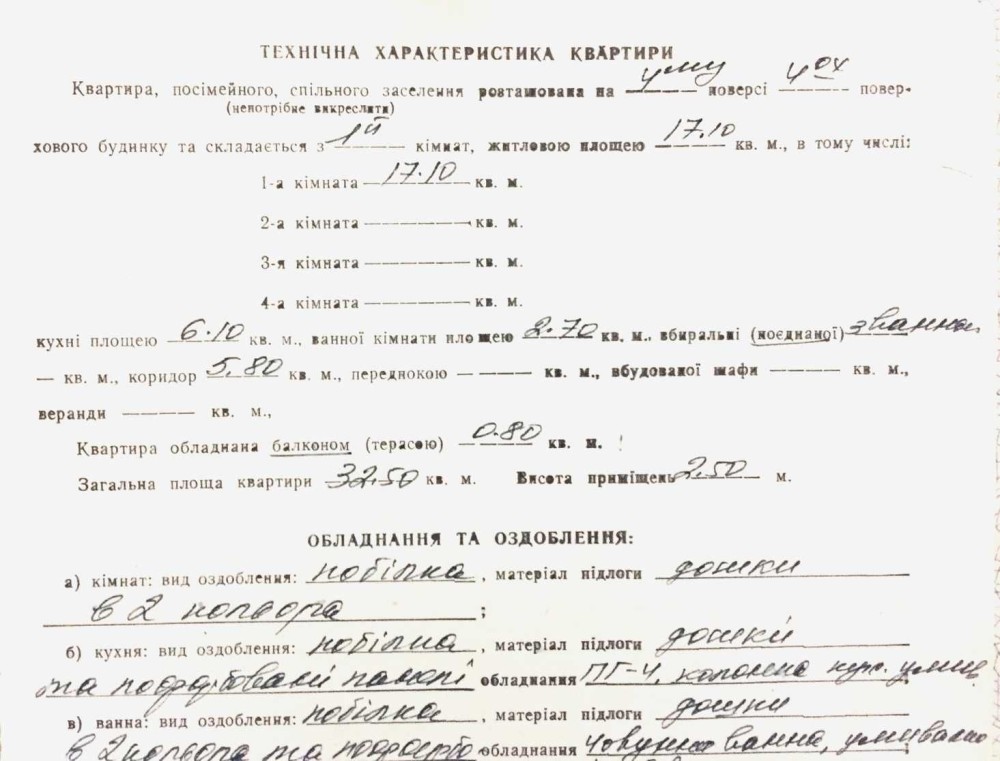 ТЕХНІЧНА ХАРАКТЕРИСТИКА КВАРТИРИ
Квартира, посімейного, спільного заселення розташована на 4му поверсі 4ох повер-
(непотрібне викреслити)
хового будинку та складається з 1ії кімнат, житловою площею 17.10 кв. м., в тому числі:
1-а кімната 17.10 кв. м.
2-а кімната кв. м.
3-я кімната кв. м.
4-а кімната кв. м.
кухні площею 6.10 кв. м., ванної кімнати площею 2.70 кв. м., вбиральні (поєднаної) з ванною
— кв. м., коридор 5.80 кв. м., передпокою — кв. м., вбудованої шафи — кв. м.,
веранди — кв. м.,
Квартира обладнана балконом (терасою) 0.80 кв. м.
Загальна площа квартири 32.50 кв. м. Висота приміщень 2.50 м.
ОБЛАДНАННЯ ТА ОЗДОБЛЕННЯ:
а) кімнат: вид оздоблення: побілка, матеріал підлоги дошки
в 2 кольора ;
б) кухня: вид оздоблення: побілка, матеріал підлоги дошки
та пофарбовані панелі обладнання ПГ-4, колонка
в) ванна: вид оздоблення: побілка, матеріал підлоги дошки
в 2 кольора та пофарбо обладнання човунна ванна,